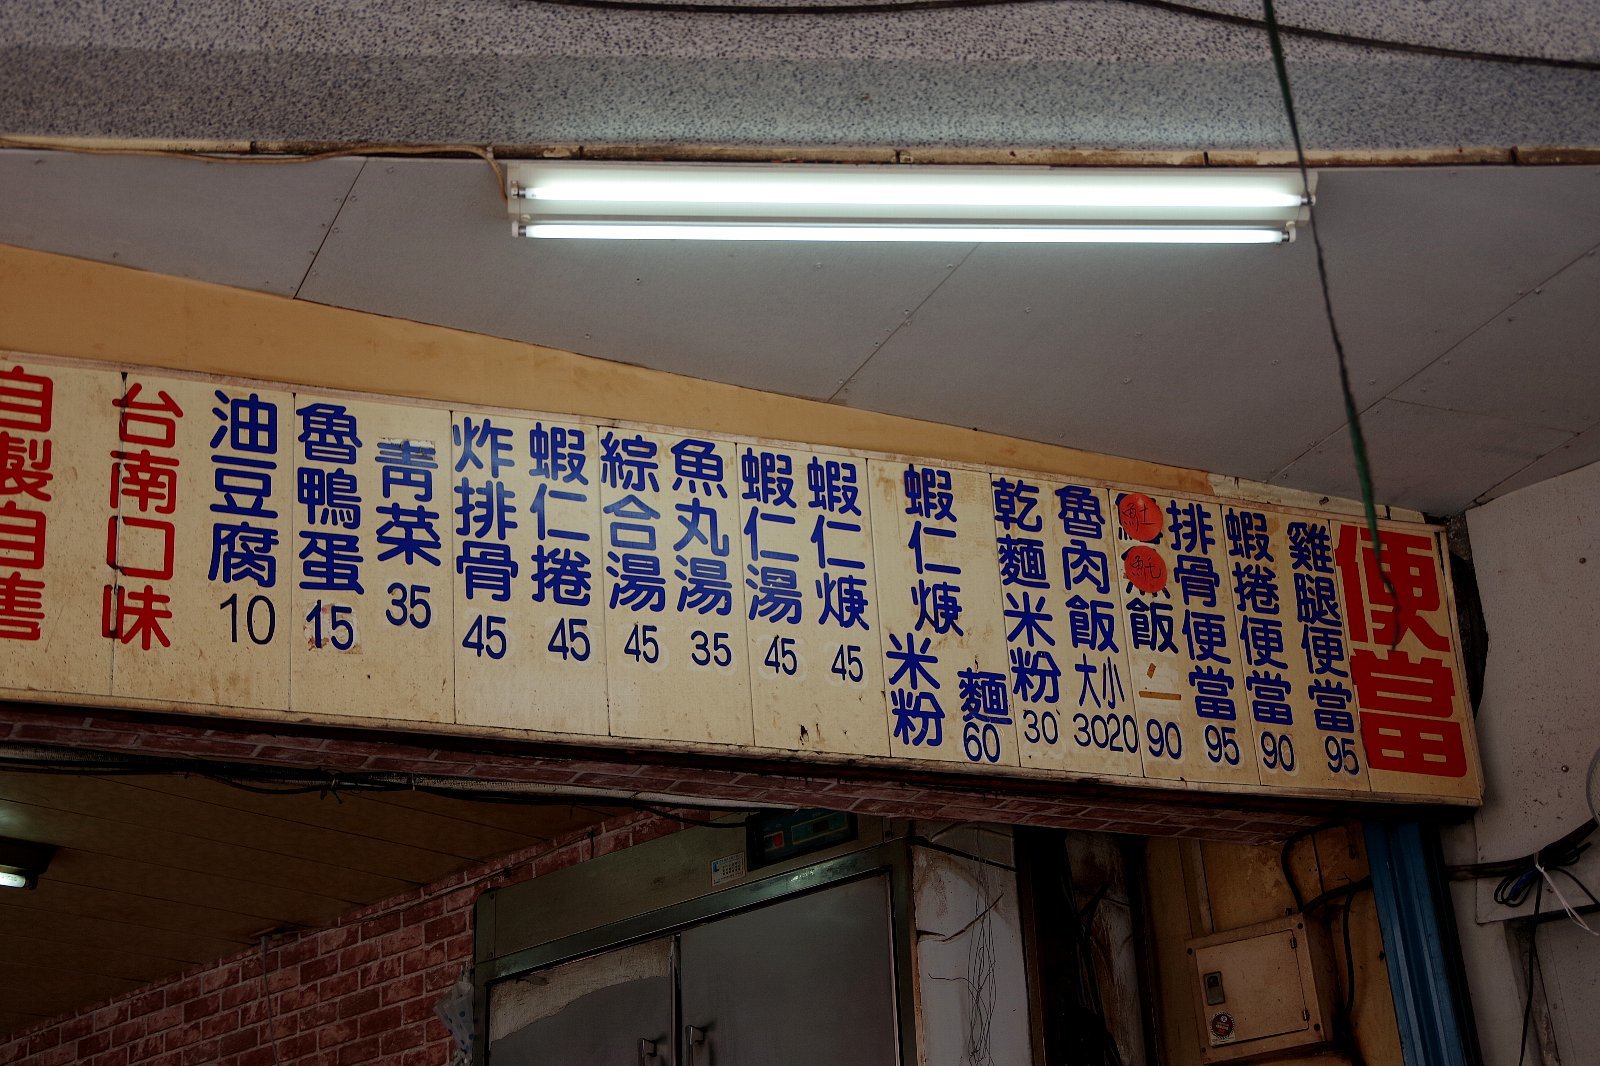 便當
雞腿便當 95
蝦捲便當 90
排骨便當 95
魠
飯 90
魯肉飯 大小 3020
乾麵米粉 30
蝦仁焿 米粉 麵 60
蝦仁焿 45
蝦仁湯 45
魚丸湯 35
綜合湯 45
蝦仁捲 45
炸排骨 45
青菜 35
魯鴨蛋 15
油豆腐 10
台南口味
自製自售